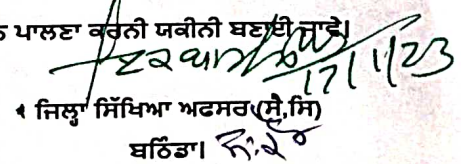 ਪਾਲਣਾ ਕਰਨੀ ਯਕੀਨੀ ਬਣਾਈ ਜਾਵੇ।
17/1/23
ਜਿਲ੍ਹਾ ਸਿੱਖਿਆ ਅਫਸਰ (ਸੈ,ਸਿ)
ਬਠਿੰਡਾ।